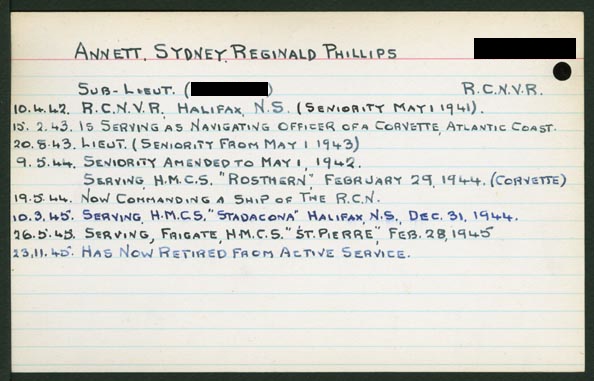 ANNETT, SYDNEY REGINALD PHILLIPS
SUB-LIEUT. ( ) R.C.N.V.R.
10.4.42. R.C.N.V.R. HALIFAX, N.S. (SENIORITY MAY 1 1941).
15.2.43. IS SERVING AS NAVIGATING OFFICER OF A CORVETTE, ATLANTIC COAST.
20.8.43. LIEUT. (SENIORITY FROM MAY 1 1943)
9.5.44. SENIORITY AMENDED TO MAY 1, 1942.
SERVING, H.M.C.S. "ROSTHERN", FEBRUARY 29, 1944. (CORVETTE)
19.5.44. NOW COMMANDING A SHIP OF THE R.C.N.
10.3.45. SERVING, H.M.C.S. "STADACONA" HALIFAX, N.S., DEC. 31, 1944.
26.5.45. SERVING, FRIGATE, H.M.C.S. "ST. PIERRE", FEB. 28, 1945
23.11.45. HAS NOW RETIRED FROM ACTIVE SERVICE.